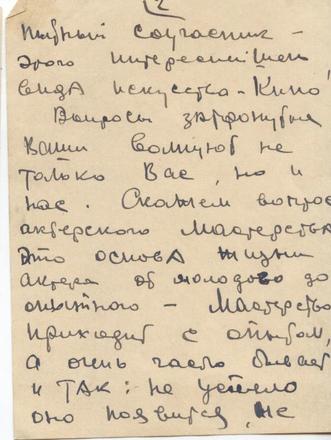 2
тивный соучастник -
этого интереснейшего
вида искусства - Кино,
Вопросы затронутые
Вами волнуют не
только Вас, но и
нас. Скажем вопрос
актерского мастерства
Это основа жизни
актера от молодого до
опытного - Мастерство
приходит с опытом,
а очень часто бывает
и ТАК: не успело
оно появится, не